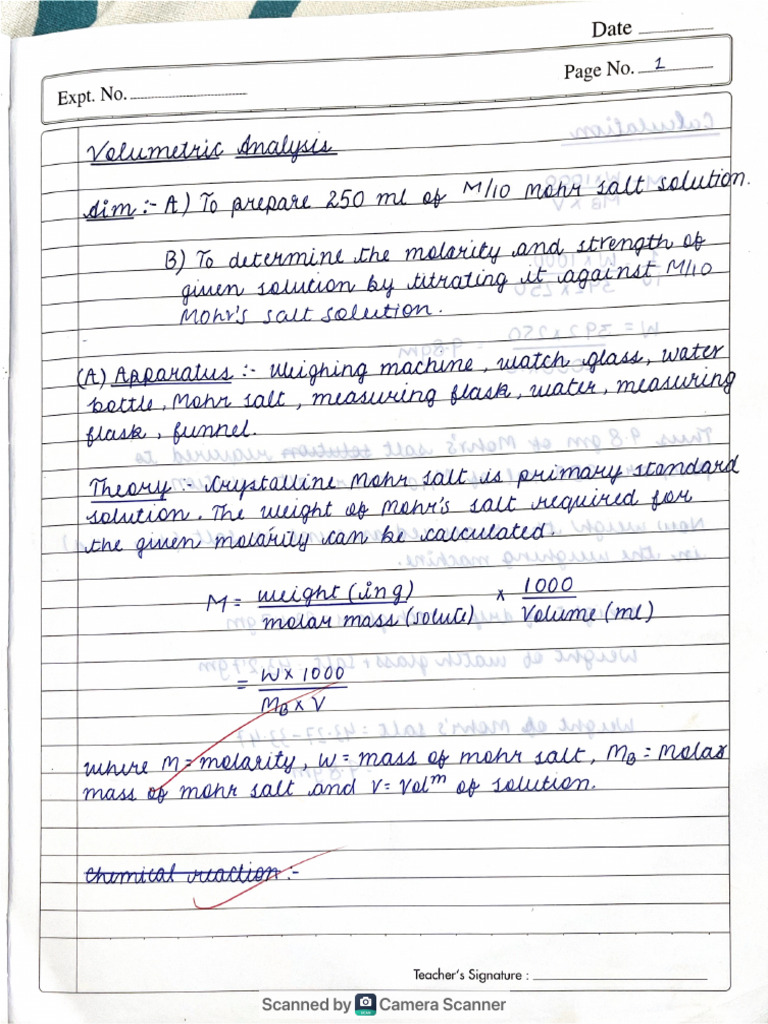 Date
Expt. No.
Page No. 1
Volumetric Analysis
Aim :- A) To prepare 250 ml of M/10 Mohr salt solution.
B) To determine the molarity and strength of
given solution by titrating it against M/10
Mohr's salt solution.
(A) Apparatus :- Weighing machine, watch glass, water
bottle, Mohr salt, measuring flask, water, measuring
flask, funnel.
Theory :- Crystalline Mohr salt is primary standard
solution. The weight of Mohr's salt required for
the given molarity can be calculated.
M = weight (in g) / molar mass (solute) x 1000 / Volume (ml)
= W x 1000 / MB x V
where M = molarity, W = mass of mohr salt, MB = Molar
mass of mohr salt and V = Volm of solution.
Chemical reaction :-
Teacher's Signature :
Scanned by Camera Scanner